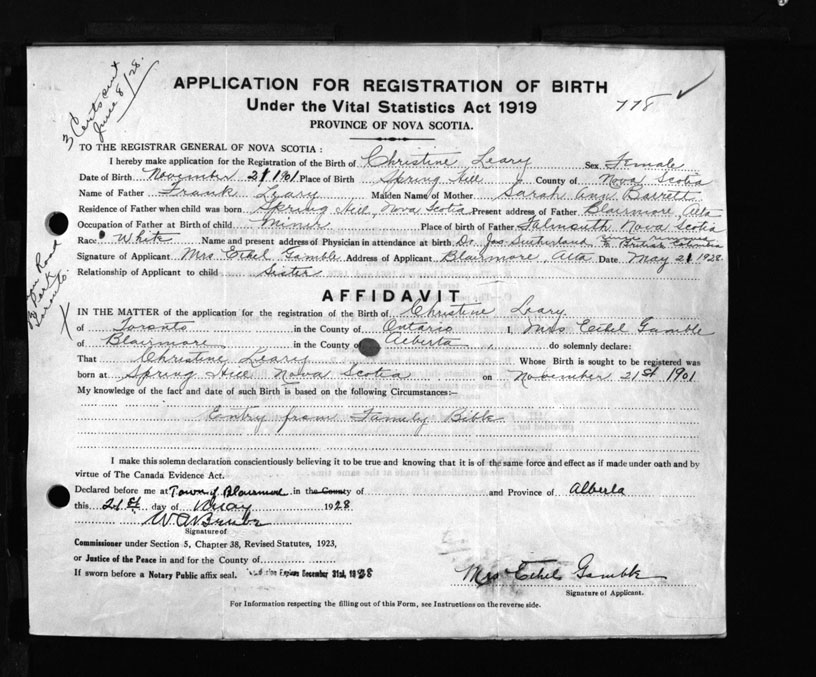 APPLICATION FOR REGISTRATION OF BIRTH
Under the Vital Statistics Act 1919
PROVINCE OF NOVA SCOTIA.
778 ✓
3 Certs sent
June 8/28.
TO THE REGISTRAR GENERAL OF NOVA SCOTIA:
I hereby make application for the Registration of the Birth of Christine Leary Sex Female
Date of Birth November 21 1901 Place of Birth Spring Hill County of Nova Scotia
Name of Father Frank Leary Maiden Name of Mother Sarah Ann Barrett
Residence of Father when child was born Spring Hill, Nova Scotia Present address of Father Blairmore Alta
Occupation of Father at Birth of child Miner Place of birth of Father Falmouth Nova Scotia
Race White Name and present address of Physician in attendance at birth Dr. Jas Sutherland British Columbia
Signature of Applicant Mrs Ethel Gamble Address of Applicant Blairmore Alta Date May 21 1928
Relationship of Applicant to child Sister
Road
Toronto.
AFFIDAVIT
IN THE MATTER of the application for the registration of the Birth of Christine Leary
of Toronto in the County of Ontario I, Mrs Ethel Gamble
of Blairmore in the County of Alberta, do solemnly declare:
That Christine Leary Whose Birth is sought to be registered was
born at Spring Hill Nova Scotia on November 21st 1901
My knowledge of the fact and date of such Birth is based on the following Circumstances:—
Entry from Family Bible
I make this solemn declaration conscientiously believing it to be true and knowing that it is of the same force and effect as if made under oath and by
virtue of The Canada Evidence Act.
Declared before me at Town of Blairmore in the County of and Province of Alberta
this 21st day of May 1928
Signature of
Commissioner under Section 5, Chapter 38, Revised Statutes, 1923,
or Justice of the Peace in and for the County of
If sworn before a Notary Public affix seal. Expires December 31st, 1928
Mrs Ethel Gamble
Signature of Applicant.
For Information respecting the filling out of this Form, see Instructions on the reverse side.